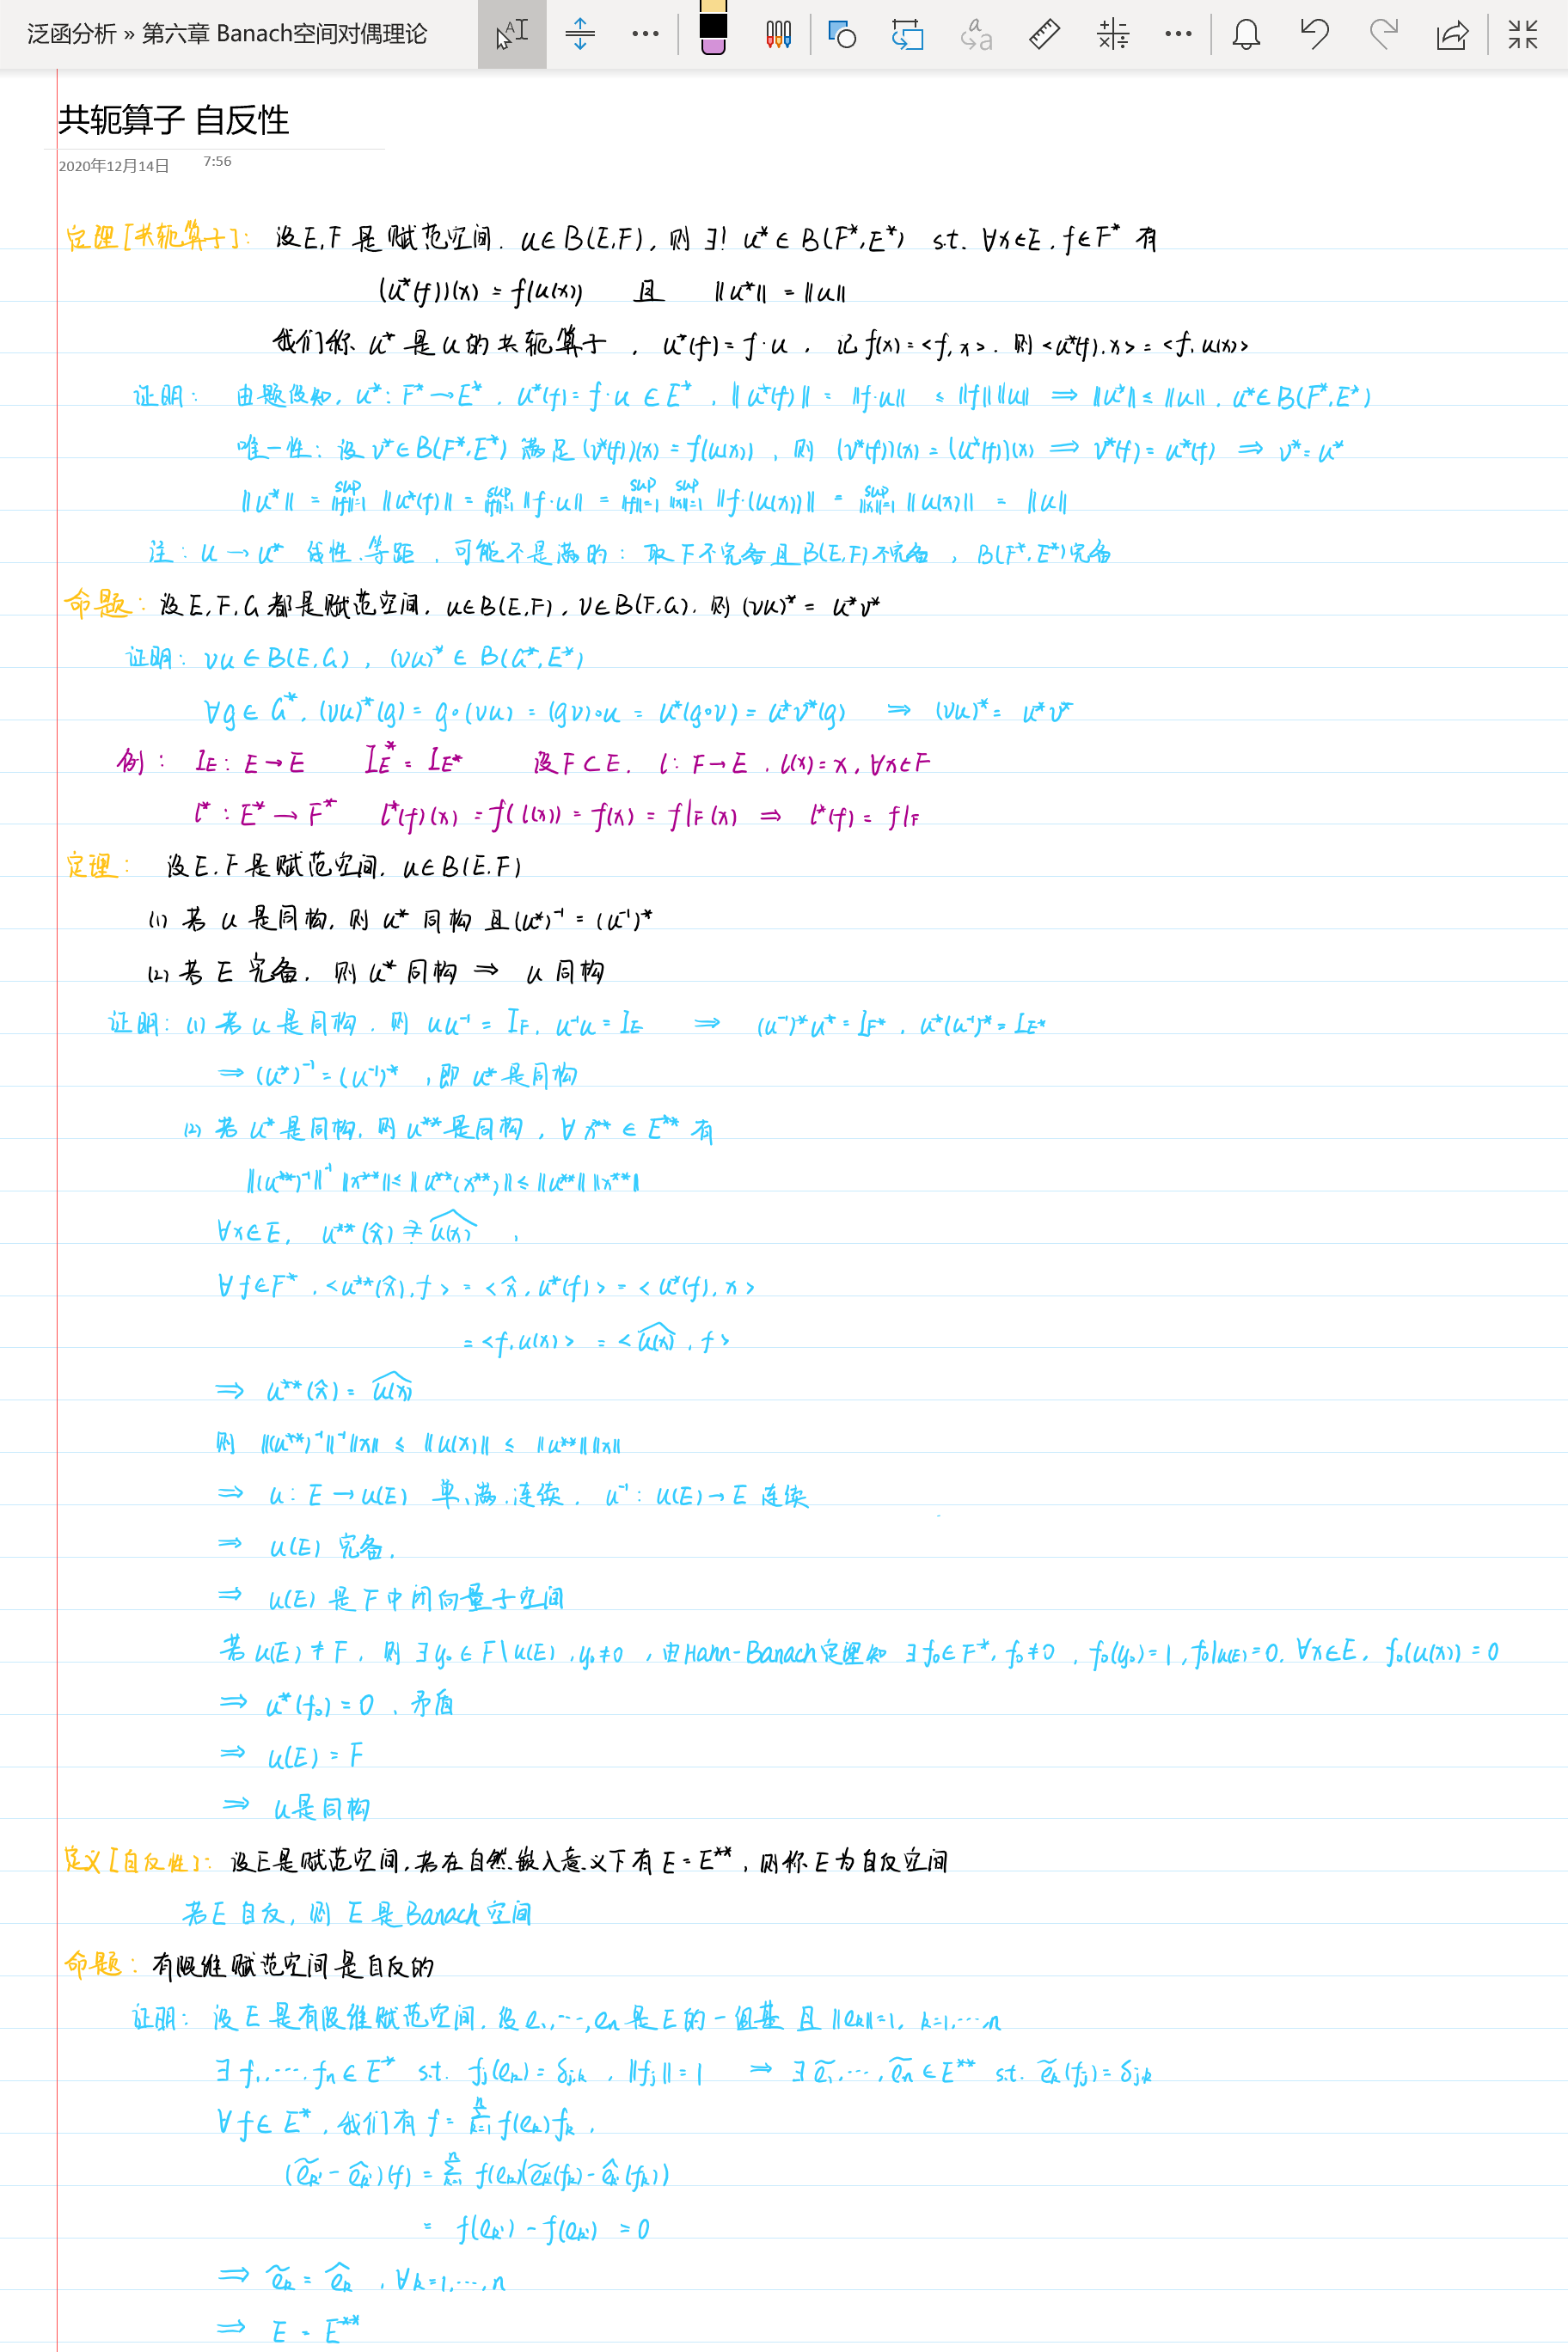 泛函分析 » 第六章 Banach空间对偶理论
共轭算子 自反性
2020年12月14日 7:56
定理[共轭算子]: 设E,F是赋范空间. u∈B(E,F), 则∃! u*∈B(F*,E*) s.t. ∀x∈E, f∈F* 有
(u*(f))(x) = f(u(x)) 且 ‖u*‖ = ‖u‖
我们称 u* 是 u 的共轭算子, u*(f) = f·u, 记 f(x) = <f, x>. 则 <u*(f), x> = <f, u(x)>
证明: 由题设知, u*: F*→E*, u*(f) = f·u ∈E*, ‖u*(f)‖ = ‖f·u‖ ≤ ‖f‖‖u‖ ⇒ ‖u*‖ ≤ ‖u‖, u*∈B(F*,E*)
唯一性: 设 v*∈B(F*,E*) 满足 (v*(f))(x) = f(u(x)), 则 (v*(f))(x) = (u*(f))(x) ⇒ v*(f) = u*(f) ⇒ v* = u*
‖u*‖ = sup_{‖f‖=1} ‖u*(f)‖ = sup_{‖f‖=1} ‖f·u‖ = sup_{‖f‖=1} sup_{‖x‖=1} ‖f·(u(x))‖ = sup_{‖x‖=1} ‖u(x)‖ = ‖u‖
注: u→u* 线性.等距, 可能不是满的: 取F不完备且B(E,F)不完备, B(F*,E*)完备
命题: 设E,F,G都是赋范空间. u∈B(E,F), v∈B(F,G). 则 (vu)* = u*v*
证明: vu∈B(E,G), (vu)*∈B(G*,E*)
∀g∈G*, (vu)*(g) = g∘(vu) = (gv)∘u = u*(g∘v) = u*v*(g) ⇒ (vu)* = u*v*
例: I_E: E→E I_E* = I_{E*} 设F⊂E. l: F→E, l(x) = x, ∀x∈F
l*: E*→F* l*(f)(x) = f(l(x)) = f(x) = f|_F(x) ⇒ l*(f) = f|_F
定理: 设E.F是赋范空间. u∈B(E,F)
(1) 若 u 是同构, 则 u* 同构 且 (u*)⁻¹ = (u⁻¹)*
(2) 若 E 完备. 则 u* 同构 ⇒ u 同构
证明: (1) 若 u 是同构, 则 uu⁻¹ = I_F, u⁻¹u = I_E ⇒ (u⁻¹)*u* = I_{F*}, u*(u⁻¹)* = I_{E*}
⇒ (u*)⁻¹ = (u⁻¹)*, 即 u* 是同构
(2) 若 u* 是同构, 则 u** 是同构, ∀x**∈E** 有
‖(u**)⁻¹‖⁻¹ ‖x**‖ ≤ ‖u**(x**)‖ ≤ ‖u**‖‖x**‖
∀x∈E, u**(x̂) ≟ \widehat{u(x)},
∀f∈F*, <u**(x̂), f> = <x̂, u*(f)> = <u*(f), x>
= <f, u(x)> = <\widehat{u(x)}, f>
⇒ u**(x̂) = \widehat{u(x)}
则 ‖(u**)⁻¹‖⁻¹‖x‖ ≤ ‖u(x)‖ ≤ ‖u**‖‖x‖
⇒ u: E→u(E) 单、满.连续. u⁻¹: u(E)→E 连续
⇒ u(E) 完备.
⇒ u(E) 是 F 中闭向量子空间
若 u(E) ≠ F, 则 ∃y₀∈F\u(E), y₀≠0, 由Hahn-Banach定理知 ∃f₀∈F*, f₀≠0, f₀(y₀)=1, f₀|_{u(E)}=0. ∀x∈E, f₀(u(x)) = 0
⇒ u*(f₀) = 0, 矛盾
⇒ u(E) = F
⇒ u是同构
定义[自反性]: 设E是赋范空间,若在自然嵌入意义下有E = E**, 则称E为自反空间
若E自反, 则E是Banach空间
命题: 有限维赋范空间是自反的
证明: 设E是有限维赋范空间. 设e₁,…,eₙ是E的一组基 且 ‖e_k‖=1, k=1,…n
∃f₁,…,fₙ∈E* s.t. f_j(e_k) = δ_{jk}, ‖f_j‖ = 1 ⇒ ∃ẽ₁,…,ẽₙ∈E** s.t. ẽ_k(f_j) = δ_{jk}
∀f∈E*, 我们有 f = ∑_{k=1}^n f(e_k)f_k,
(ẽ_{k'} - ê_{k'})(f) = ∑_{k=1}^n f(e_k)(ẽ_{k'}(f_k) - ê_{k'}(f_k))
= f(e_{k'}) - f(e_{k'}) = 0
⇒ ẽ_k = ê_k, ∀k=1,…,n
⇒ E = E**